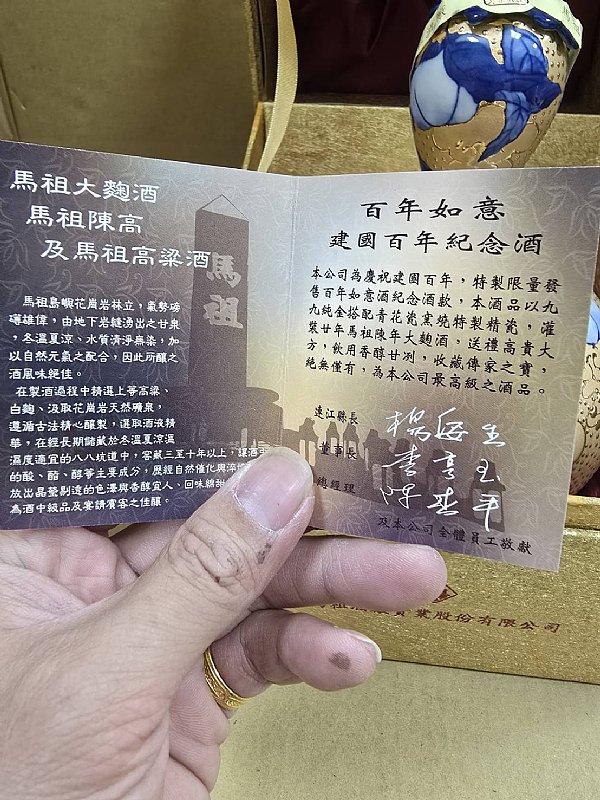 馬祖大麴酒
馬祖陳高
及馬祖高粱酒
馬祖島嶼花崗岩林立，氣勢磅
礡雄偉，由地下岩縫湧出之甘泉
，冬溫夏涼、水質清淨無染，加
以自然元氣之配合，因此所釀之
酒風味絕佳。
在製酒過程中精選上等高粱、
白麴、汲取花崗岩天然礦泉，
遵循古法精心釀製，選取酒液精
華，在經長期儲藏於冬溫夏涼溫
濕度適宜的八八坑道中，窖藏三至十年以上，讓酒中
的酸、酯、醇等主要成分，歷經自然催化與淬
放出晶瑩剔透的色澤與香醇宜人、回味綿甜
為酒中級品及宴請賓客之佳釀。
馬祖
百年如意
建國百年紀念酒
本公司為慶祝建國百年，特製限量發
售百年如意酒紀念酒款，本酒品以九
九純金搭配青花瓷窯燒特製精瓷，灌
裝廿年馬祖陳年大麴酒，送禮高貴大
方，飲用香醇甘冽，收藏傳家之寶，
絕無僅有，為本公司最高級之酒品。
連江縣長 楊綏生
董事長
總經理
及本公司全體員工敬獻
業股份有限公司